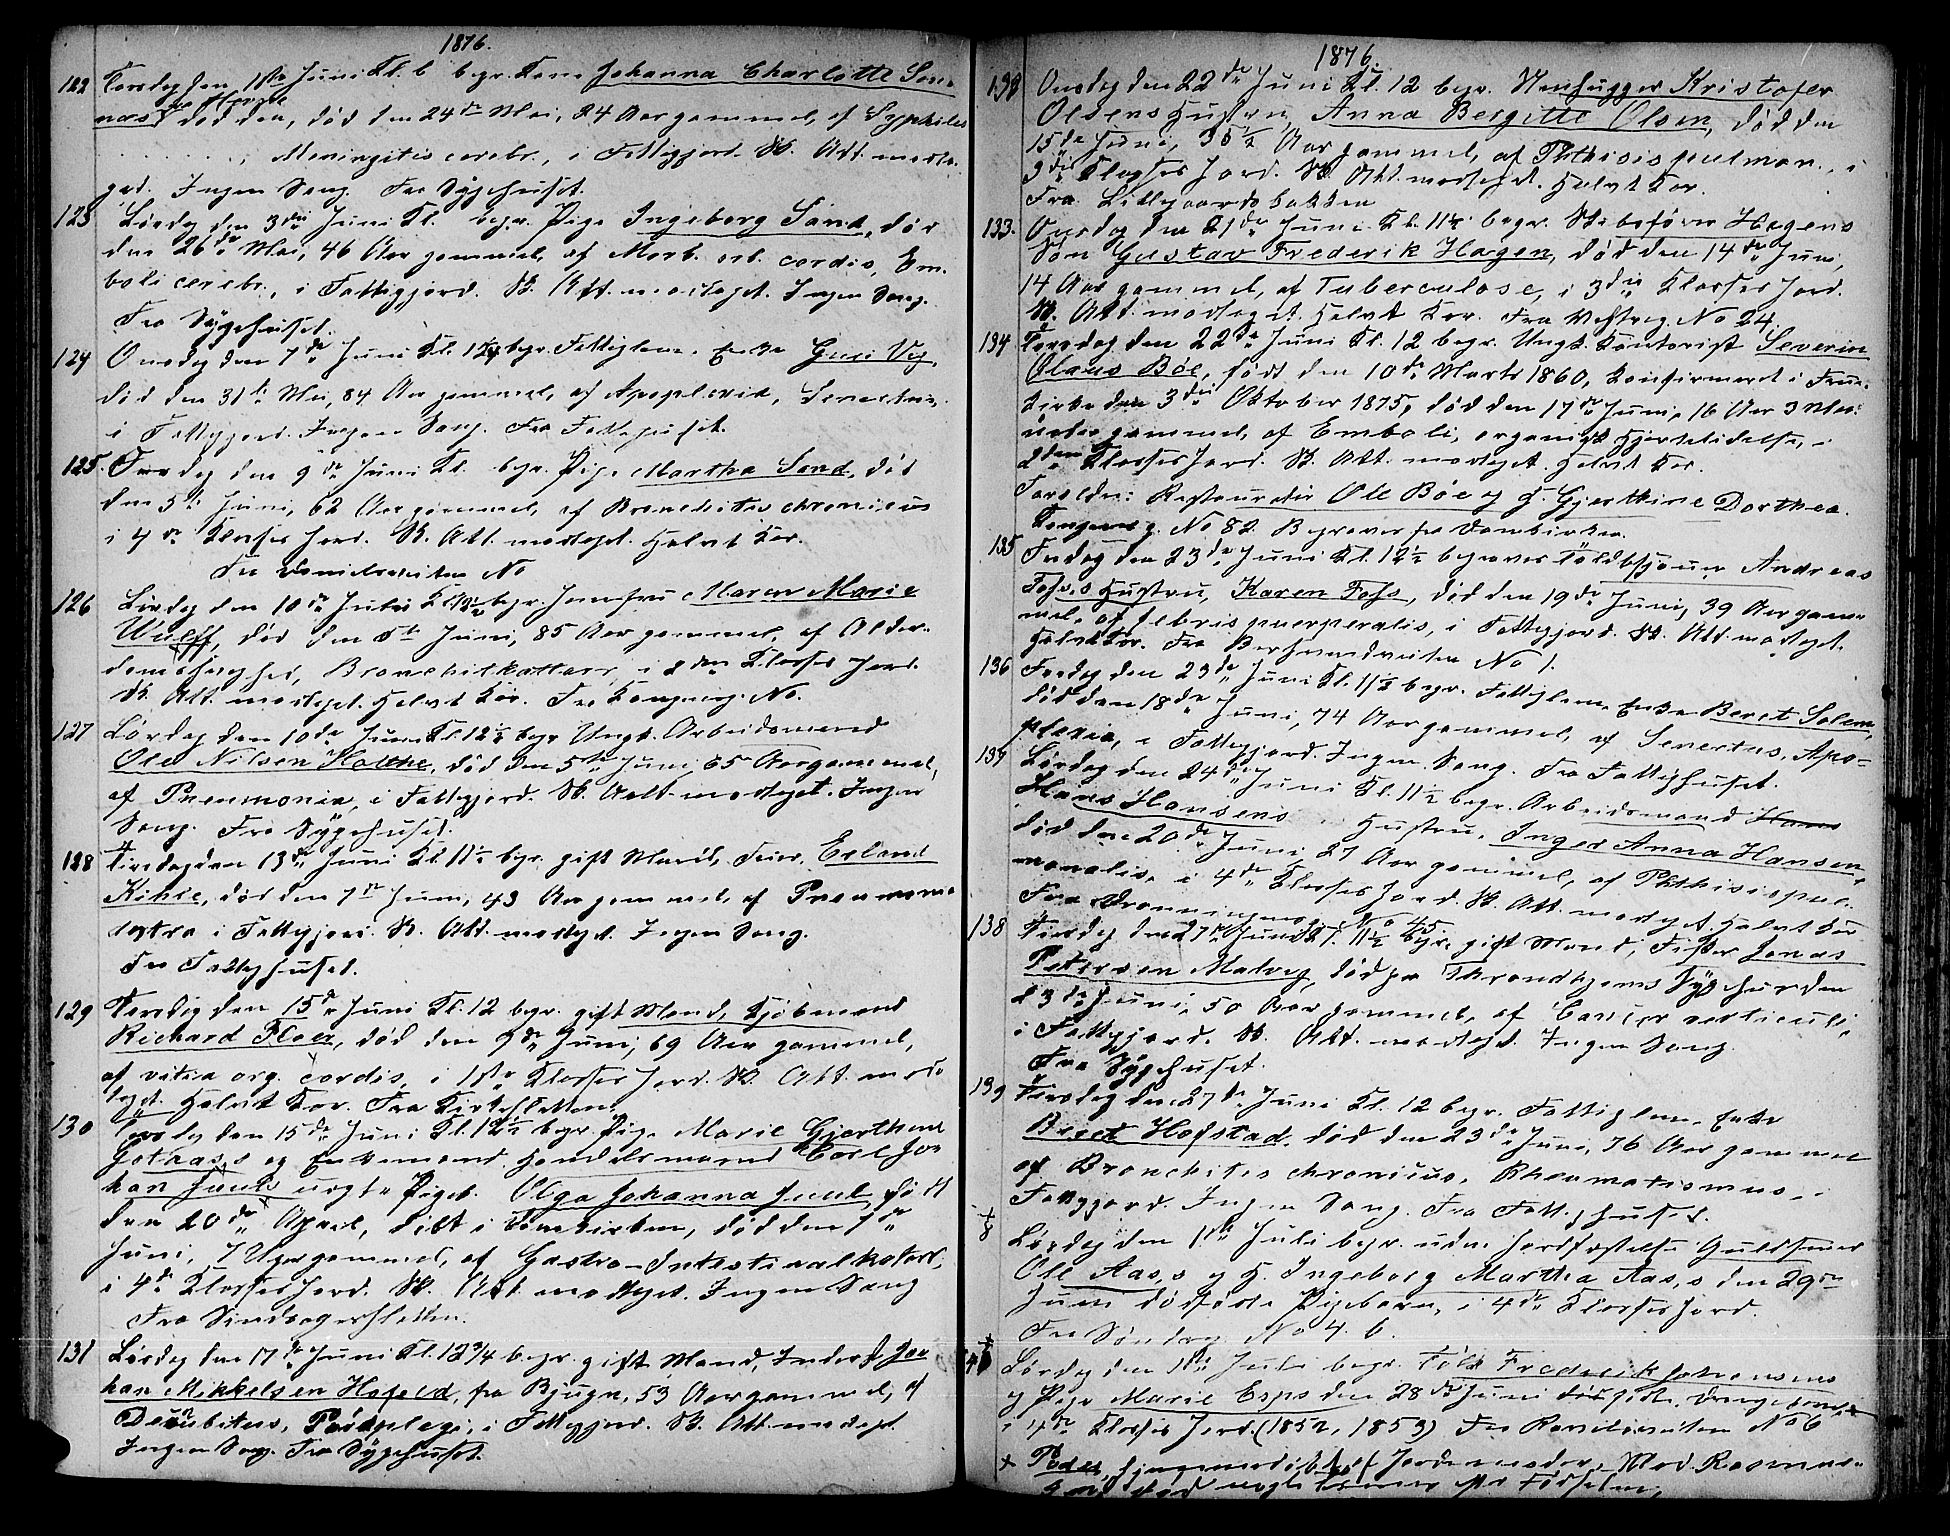 1876.
122 Torsdag den 1ste Juni Kl. 6 begr. Kone Johanna Charlotte Søm-
næs, død den, død den 24de Mai, 24 Aar gammel, af Syphilis
. . . . . . . , Meningitis cerebr., i Fattigjord. Sk. Att. modta-
get. Ingen Sang. Fra Sygehuset.
123 Lørdag den 3die Juni Kl. begr. Pige Ingeborg Sand, død
den 26de Mai, 46 Aar gammel, af Morb. org. cordis, Em-
boli cerebr., i Fattigjord. Sk. Att. modtaget. Ingen Sang.
Fra Sygehuset.
124 Onsdag den 7de Juni Kl. begr. Fattiglem, Enke Guri Vig,
død den 31te Mai, 84 Aar gammel, af Apoplexia, Senectus,
i Fattigjord. Ingen Sang. Fra Fattighuset.
125. Fredag den 9de Juni Kl. begr. Pige Martha Sand, død
den 5te Juni, 62 Aar gammel, af Bronchitis chronicus
i 4de Klasses Jord. Sk. Att. modtaget. Halvt Kor.
Fra Danielsveiten No
126 Lørdag den 10de Juni Kl. begr. Jomfru Maren Marie
Wulff, død den 5te Juni, 85 Aar gammel, af Alder-
domssvaghed, Bronchitkattarr, i 2den Klasses Jord.
Sk. Att. modtaget. Halvt Kor. Fra Kongensg. No.
127 Lørdag den 10de Juni Kl. 12½ begr. Ungk. Arbeidsmand
Ole Nilsen Holthe, død den 5te Juni 65 Aar gammel,
af Pneumonia, i Fattigjord. Sk. Att. modtaget. Ingen
Sang. Fra Sygehuset.
128 Tirsdag den 13de Juni Kl. 11½ begr. gift Mand, Feier, Erland
Kihle, død den 7de Juni, 43 Aar gammel, af Pneumonia
dextra i Fattigjord. Sk. Att. modtaget. Ingen Sang.
Fra Fattighuset.
129 Torsdag den 15de Juni Kl. 12 begr. gift Mand, Kjøbmand
Richard Floer, død den 9de Juni, 69 Aar gammel,
af vitia org. cordis, i 1ste Klasses Jord. Sk. Att. mod-
taget. Halvt Kor. Fra Kirkesletten.
130 Torsdag den 15de Juni Kl. 12½ begr. Pige Marie Gjerthine
Jothas,s og Enkemand Handelsmand Carl Jo-
han Juuls uægte Pigeb. Olga Johanna Juul, født
den 20de April, døbt i Domkirken, død den 7de
Juni, 7 Uger gammel, af Gastro-Intestinalkatarr,
i 4de Klasses Jord. Sk. Att. modtaget. Ingen Sang
Fra Sindsagersletten.
131 Lørdag den 17de Juni Kl. 12¾ begr. gift Mand, Inderst Jo-
han Mikkelsen Hofeld, fra Bjugn, 53 Aar gammel, af
Decubitus, Paraplegi, i Fattigjord. Sk. Att. modtaget
Ingen Sang. Fra Sygehuset.
1876.
132 Onsdag den 22de Juni Kl. 12 begr. Stenhugger Kristofer
Olsens Hustru Anna Bergitte Olsen, død den
15de Juni, 35½ Aar gammel, af Phthisis pulmon., i
3die Klasses Jord. Sk. Att. modtaget. Halvt Kor.
Fra Lillegaardsbakken
133. Onsdag den 21de Juni Kl. 11½ begr. Skibsfører Hagens
Søn Gustav Frederik Hagen, død den 14de Juni,
14 Aar gammel, af Tuberculose, i 3die Klasses Jord.
Sk. Att. modtaget. Halvt Kor. Fra No 24.
134 Torsdag den 22de Juni Kl. 12 begr. Ungk. Kontorist Severin
Olaus Böe, født den 10de Marts 1860, konfirmeret i Frue-
kirke den 3die Oktober 1875, død den 17de Juni, 16 Aar 3 Maa-
neder gammel, af Emboli, organisk Hjertelidelse, i
2den Klasses Jord. Sk. Att. modtaget. Halvt Kor.
Forældre: Restauratør Ole Böe og H. Gjerthine Dorthea.
Kongensg. No 82. Begraves fra Domkirken.
135 Fredag den 23de Juni Kl. 12½ begraves Toldbetjent Andreas
Foss,s Hustru, Karen Foss, død den 19de Juni, 39 Aar gam-
mel, af febris puerperalis, i Fattigjord. Sk. Att. modtaget.
Halvt Kor. Fra No 1.
136 Fredag den 23de Juni Kl. 11½ begr. Fattiglem, Enke Beret Solem,
død den 18de Juni, 74 Aar gammel, af Senectus, Apo-
plexia, i Fattigjord. Ingen Sang. Fra Fattighuset.
137 Lørdag den 24de Juni Kl. 11½ begr. Arbeidsmand Hans
Hans Hansens Hustru, Inger Anna Hansen,
død den 20de Juni 27 Aar gammel, af Phthisis pul-
monalis, i 4de Klasses Jord. Sk. Att. modtaget. Halvt Kor
Fra Dronningensg. No 45.
138 Tirsdag den 27de Juni Kl. 11½ begr. gift Mand, Fisker Jonas
Petersen Malvig, død paa Throndhjems Sygehus den
23de Juni, 50 Aar gammel, af Cancer ventriculi,
i Fattigjord. Sk. Att. modtaget. Ingen Sang.
Fra Sygehuset.
139 Tirsdag den 27de Juni Kl. 12 begr. Fattiglem, Enke
Beret Hofstad, død den 23de Juni, 76 Aar gammel
af Bronchitis chronicus, Rheumatismus, i
Fattigjord. Ingen Sang. Fra Fattighuset.
Lørdag den 1ste Juli begr. uden Jordfæstelse Guldsmed
Ole Aas,s og H. Ingeborg Martha Aas,s den 29de
Juni dødfødte Pigebarn, i 4de Klasses Jord.
Fra Søndreg. No 4. b.
Lørdag den 1ste Juli begr. Frederik Johansens
og Pige Marie Esps den 28de Juni dødfødte Drengebarn
i 4de Klasses Jord. (1852, 1853) Fra No 6
+ Jordemoder, Mad. Rasmus-